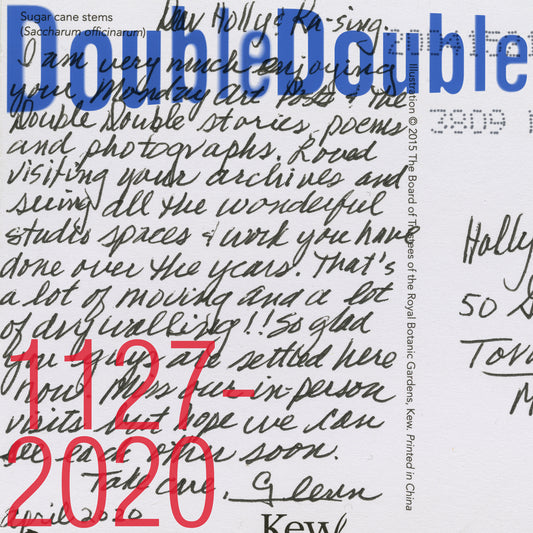 Sugar cane stems
(Saccharum officinarum)
DoubleDouble
Dear Holly & Ka-sing.
I am very much enjoying
your Monday Art Posts & the
Double Double stories, poems
and photographs. Loved
visiting your archives and
seeing all the wonderful
studio spaces & work you have
done over the years. That's
a lot of moving and a lot
of dry walling!! So glad
you guys are settled here
now. Miss our in-person
visits but hope we can
see each other soon.
Take care,
April 2020
1127-
2020
Kew
Illustration © 2015 The Board of Trustees of the Royal Botanic Gardens, Kew. Printed in China
3809
Holly
50